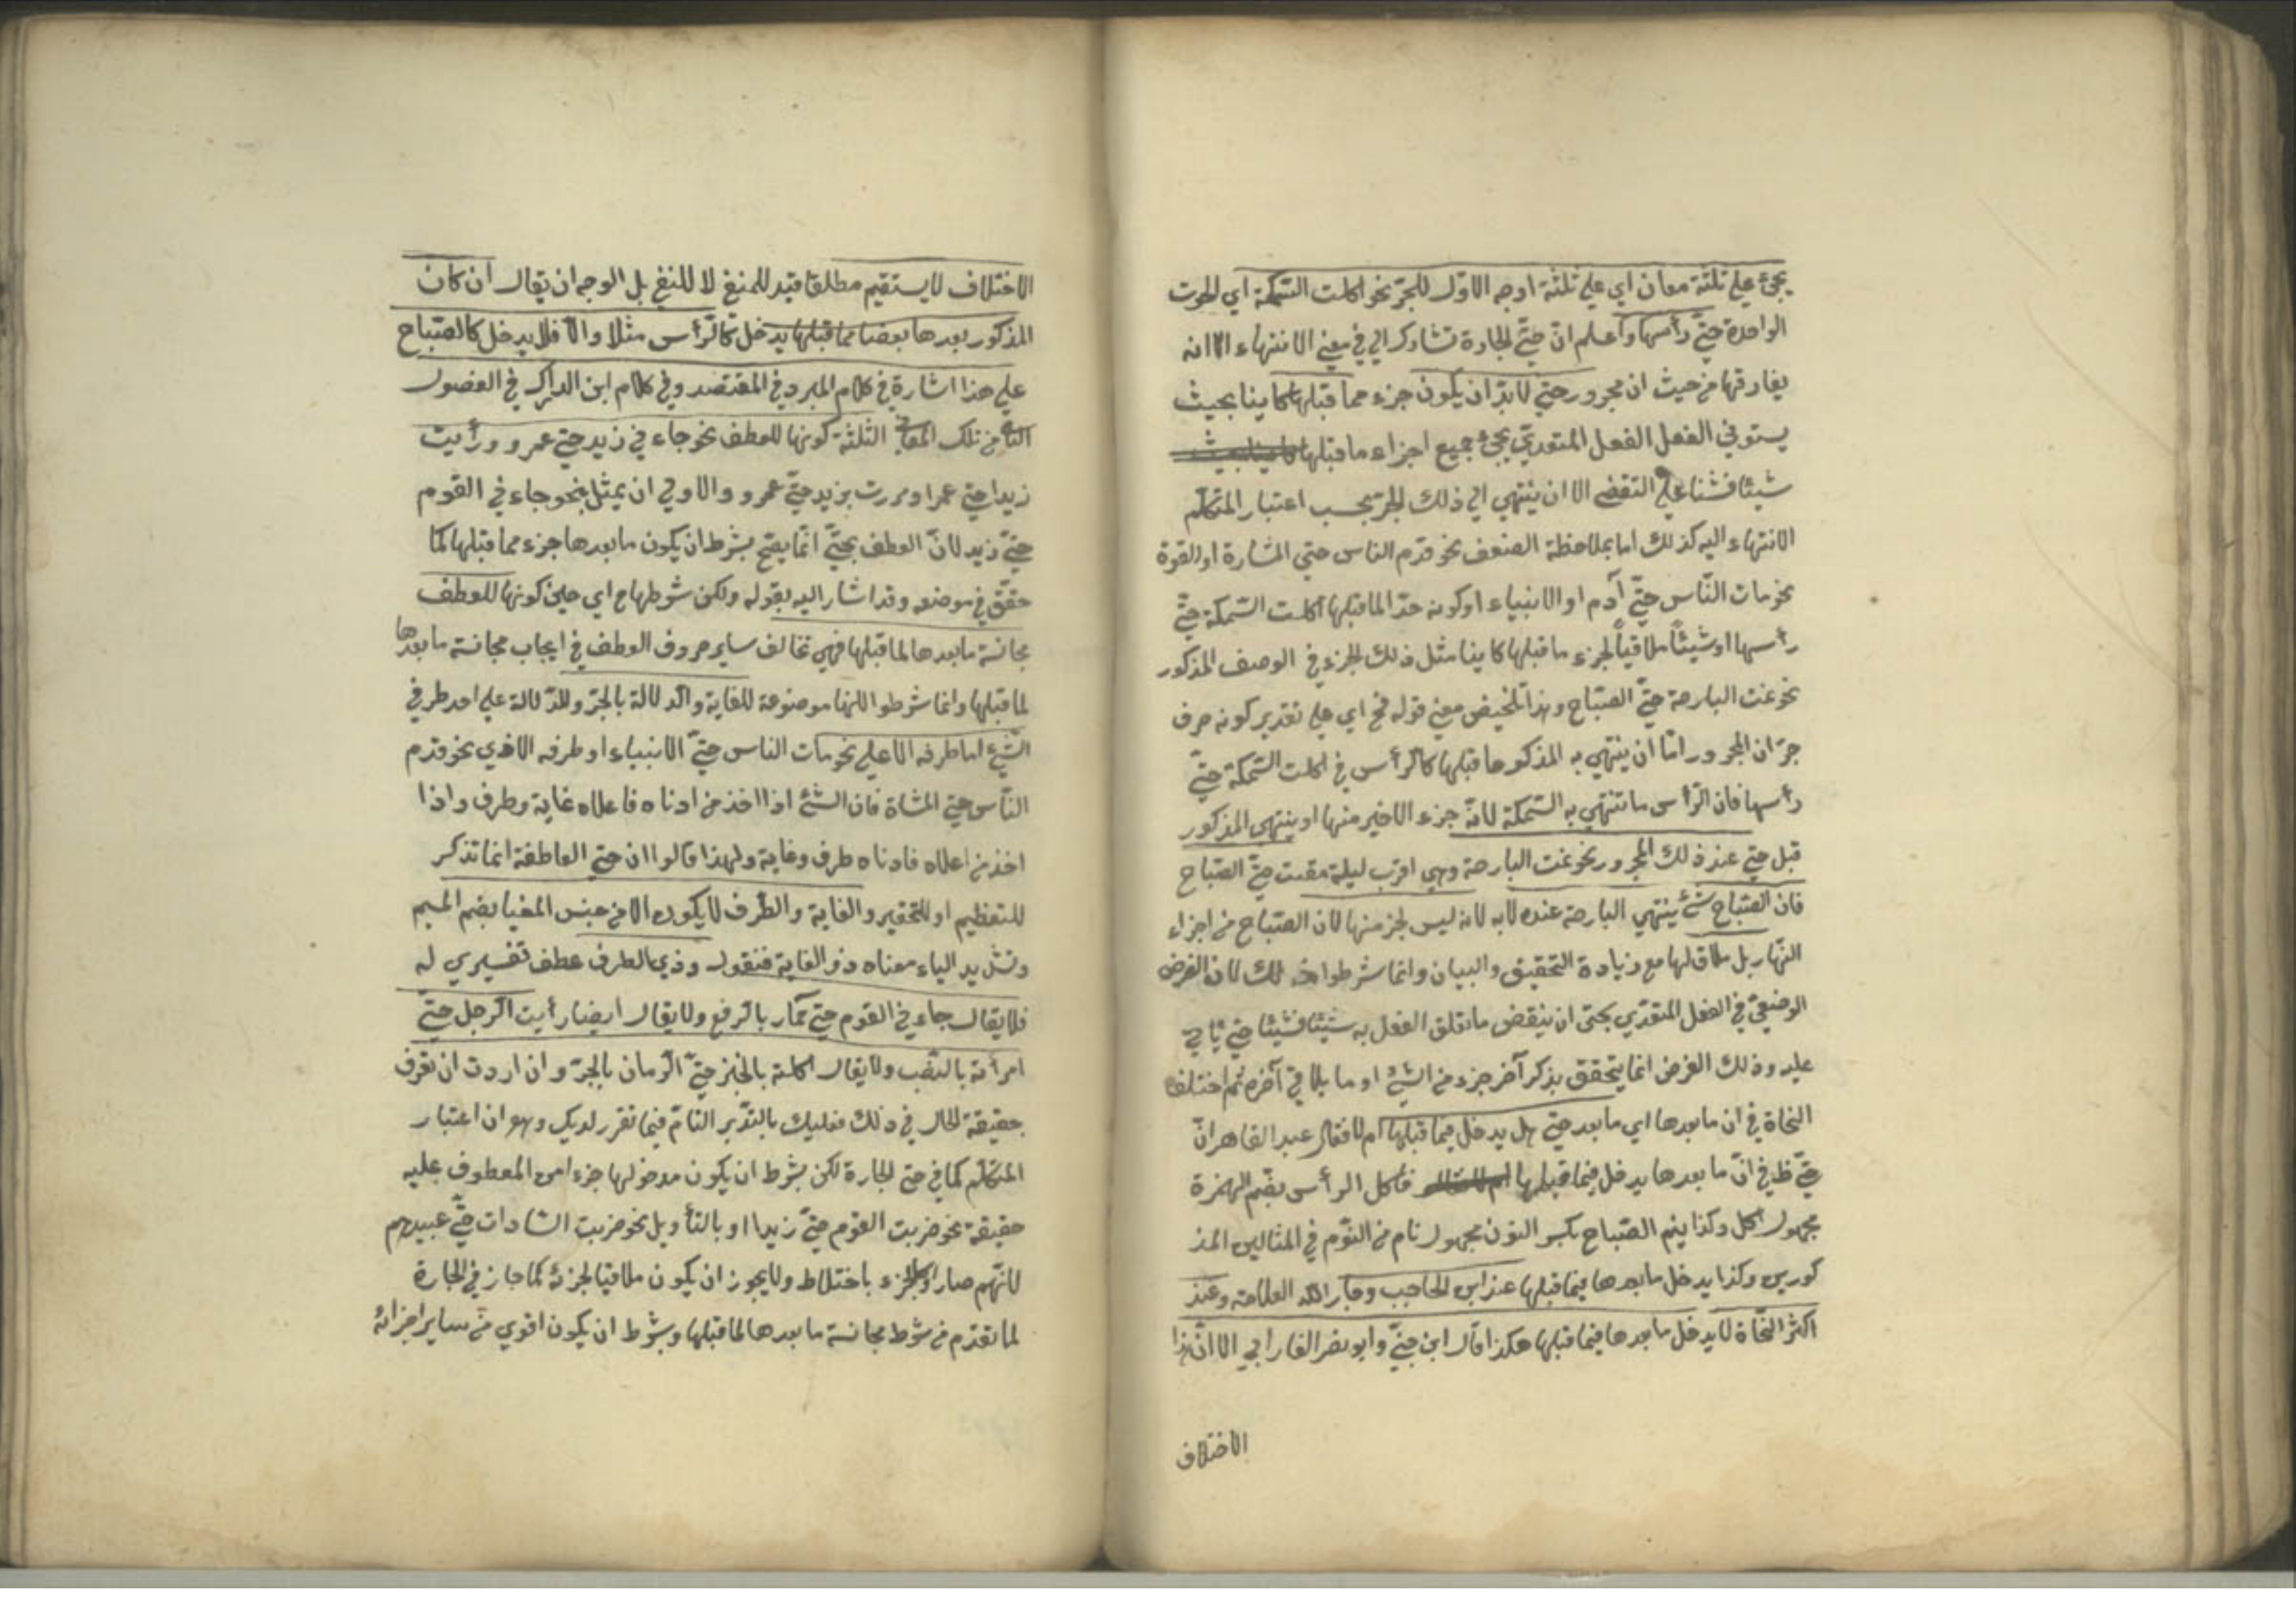 يجئ علي ثلثة معان اي علي ثلثة اوجه الاوّل للجرّ نحو اكلت السّمكة اي الحوت
الواحدة حتّي رأسها واعلم انّ حتّي الجارة تشارك الي في معني الانتهاء الا انه
يفارقها من حيث ان مجرور حتي لابدّ ان يكون جزء مما قبلها كاينا بحيث
يستوفي الفعل الفعل المتعديّ بحيّ جميع اجزاء ما قبلها
شيئا فشئا علي التقضي الا ان ينتهي الي ذلك الجزء بحسب اعتبار المتكلّم
الانتهاء اليه كذلك اما بملاحظة الضعف نحو قدم الناس حتي المشارة او القوة
نحو مات النّاس حتّي آدم او الانبياء او كونه حدّا لما قبلها اكلت السّمكة حتّي
رأسها او شيئاً ملاقياً لجزء ما قبلها كاينا مثل ذلك الجزء في الوصف المذكور
نحو نمت البارحة حتّي الصّباح وهذا تلخيص معني قوله فح اي علي تقدير كونه حرف
جرّ ان المجرور امّا ان ينتهي به المذكور ما قبلها كالرأس في اكلت السّمكة حتّي
رأسها فان الرّأس ما تنتهي به السّمكة لانّه جزء الاخير منها او ينتهي المذكور
قبل حتي عند ذلك المجرور نحو نمت البارحة وهي اقرب ليلة مضت حتّي الصّباح
فان الصّباح شئ ينتهي البارحة عنده لا به لانه ليس لجز منها لان الصّباح من اجزاء
النّهار بل ملاق لها مع زيادة التحقيق والبيان وانما شرطوا ذلك لان الغرض
الوضعيّ في الفعل المتعدّي بحتي ان ينقض ما تعلق الفعل به شيئا فشيئا حتي يأتي
عليه وذلك الغرض انما يتحقق بذكر آخر جزء من الشئ او ما يلاقي آخره ثم اختلف
النحاة في ان ما بعدها اي ما بعد حتّي هل يدخل فيما قبلها ام لا فقال عبد القاهر انّ
حتّي في انّ ما بعدها يدخل فيما قبلها فاكل الرأس بضّم الهمزة
مجهول اكل وكذا ينم الصّباح بكسر النون مجهول نام من النّوم في المثالين المذ
كورين وكذا يدخل ما بعدها فيما قبلها عند ابن الحاجب وجار اللّه العلامة وعند
اكثر النحّاة لا يدخل ما بعدها فيما قبلها هكذا قال ابن جنّي وابو نصر الفارابي الا انّ هذا
الاختلاف
الاختلاف لا يستقيم مطلقا قيد للمنفي لا للنفي بل الوجه ان يقال ان كان
المذكور بعدها بعضا مما قبلها يدخل كالرّأس مثلا والّا فلا يدخل كالصّباح
علي هذا اشارة في كلام المبرد في المقتصد وفي كلام ابن الدّاكر في الفصول
الثاني من تلك المعاني الثّلثة كونها للعطف نحو جاءني زيد حتي عمرو ورأيت
زيدا حتي عمرا ومررت بزيد حتّي عمرو والاولي ان يمثل بنحو جاءني القوم
حتّي زيد لانّ العطف بحتّي انما يصّح بشرط ان يكون ما بعدها جزء مما قبلها كما
حقّق في موضعه وقد اشار اليه بقوله ولكن شرطها ح اي حين كونها للعطف
مجانسة ما بعدها لما قبلها فهي تخالف ساير حروف العطف في ايجاب مجانسة ما بعدها
لما قبلها وانما شرطوا لانها موضوعة للغاية والدلالة بالجرّ وللدّلالة علي احد طرفي
الشئ اما طرفه الاعلي نحو مات الناس حتيّ الانبياء او طرفه الادني نحو قدم
النّاس حتي المشاة فان الشئ اذا اخذ من ادناه فاعلاه غاية وطرف واذا
اخذ من اعلاه فادناه طرف وغاية ولهذا قالوا ان حتي العاطفة انما تذكر
للتعظيم او للتحقير والغاية والطّرف لا يكون الا من جنس المغيا بضم الميم
وتشديد الياء معناه ذو الغاية فنقول وذي الطرف عطف تفسيري له
فلا يقال جاءني القوم حتّي حمّار بالرفع ولا يقال ايضا رأيت الرجل حتّي
امرأة بالنصّب ولا يقال اكلته بالخبز حتيّ الرّمان بالجرّ وان اردت ان تعرف
حقيقة الحال في ذلك فعليك بالتدّبر التامّ فيما تقرر لديك وهو ان اعتبار
المتكلّم كما في حتي الجارة لكن بشرط ان يكون مدخولها جزء من المعطوف عليه
حقيقة نحو ضربت القوم حتيّ زيدا او بالتأويل نحو ضربت السّادات حتّي عبيدهم
لانّهم صاروا كالجزء باختلاط ولا يجوز ان يكون ملاقيا لجزء كما جاز في الجارة
لما تقدّم من شرط مجانسة ما بعدها لما قبلها وبشرط ان يكون اقوي من ساير اجزائه